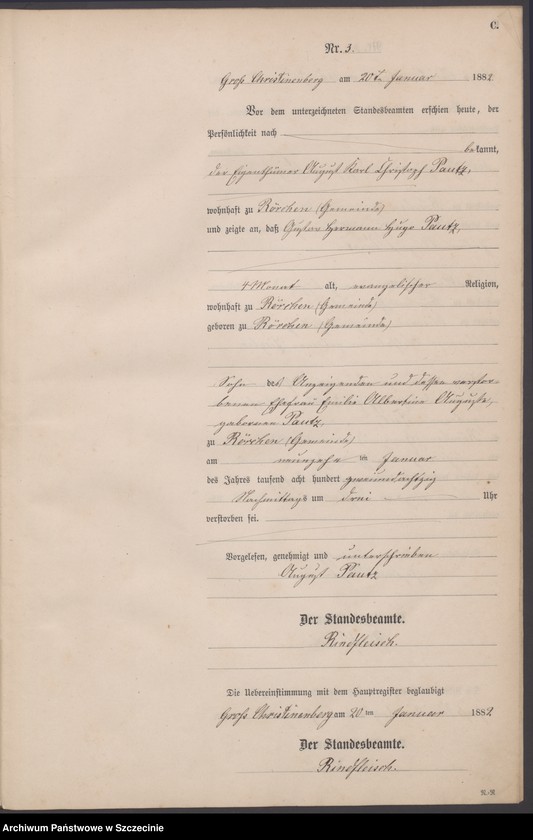 C.
Nr. 3.
Groß Christinenberg am 20t. Januar 1882.
Vor dem unterzeichneten Standesbeamten erschien heute, der
Persönlichkeit nach
bekannt,
der Eigenthümer August Karl Christoph Pautz,
wohnhaft zu Rörchen (Gemeinde)
und zeigte an, daß Gustav Hermann Hugo Pautz,
4 Monat alt, evangelischer Religion,
wohnhaft zu Rörchen (Gemeinde)
geboren zu Rörchen (Gemeinde)
Sohn des Anzeigenden und dessen verstor-
benen Ehefrau Emilie Albertine Auguste,
geborenen Pautz,
zu Rörchen (Gemeinde)
am neunzehn ten Januar
des Jahres tausend acht hundert zweiundachtzig
Nachmittags um drei Uhr
verstorben sei.
Vorgelesen, genehmigt und unterschrieben
August Pautz
Der Standesbeamte.
Rindfleisch.
Die Uebereinstimmung mit dem Hauptregister beglaubigt
Groß Christinenberg am 20 ten Januar 1882
Der Standesbeamte.
Rindfleisch.
Archiwum Państwowe w Szczecinie